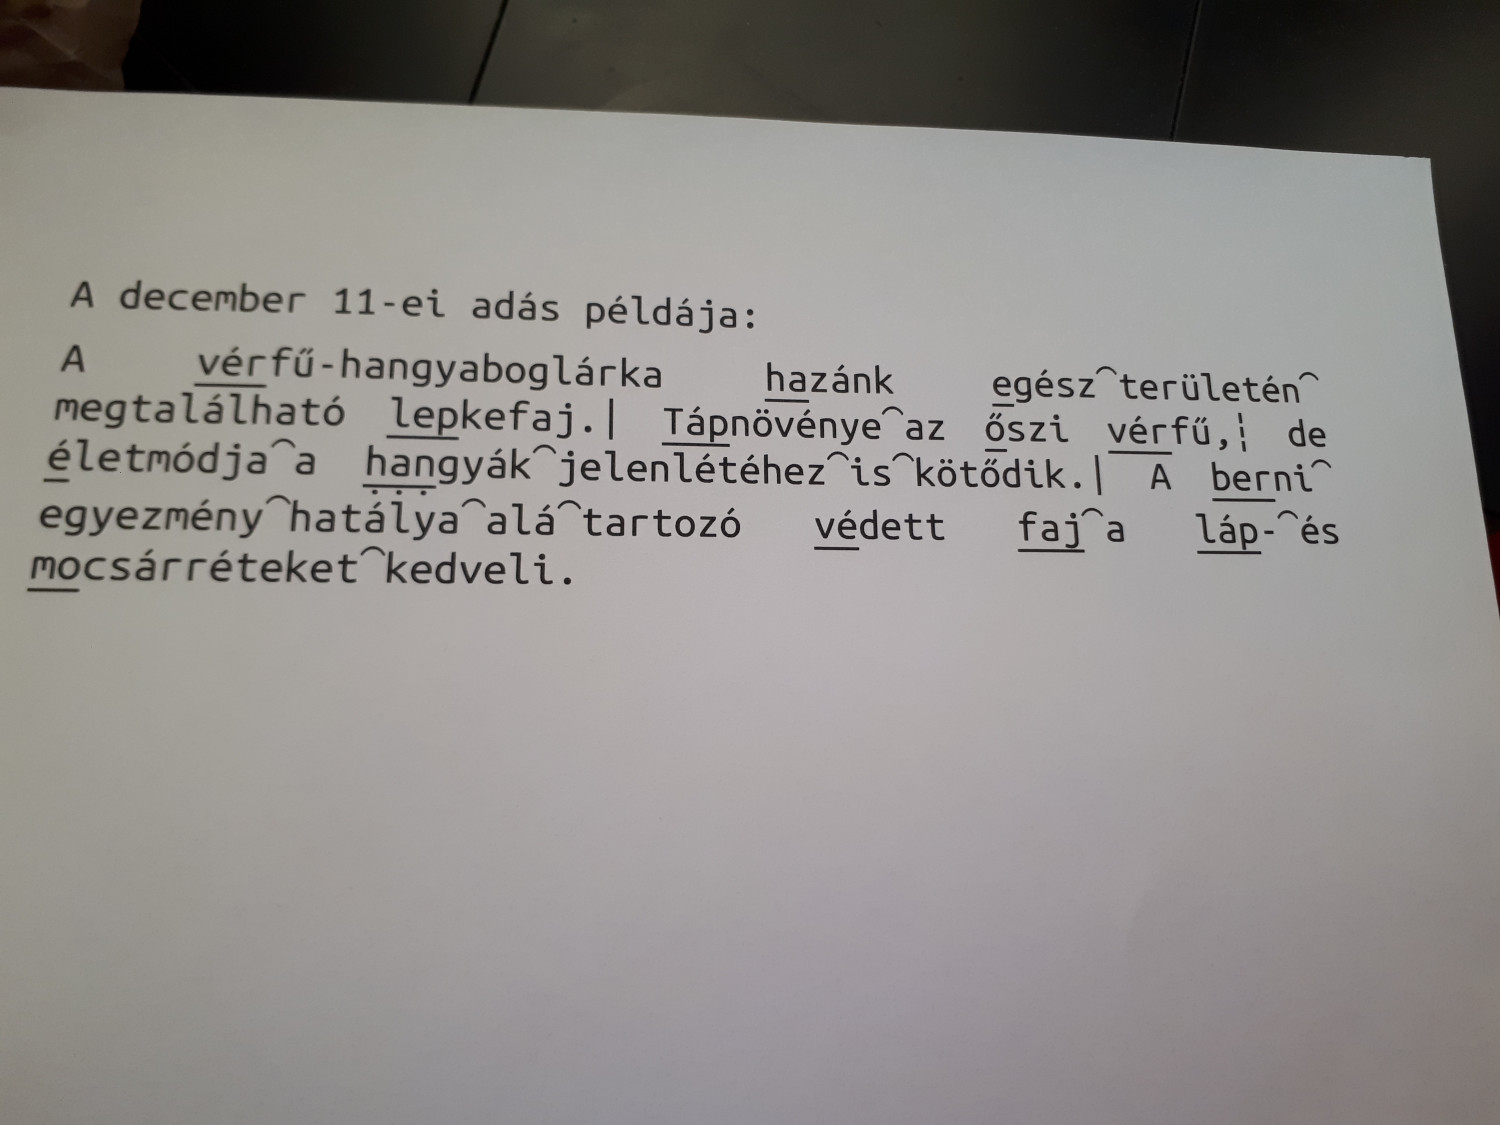 A december 11-ei adás példája:
A vérfű-hangyaboglárka hazánk egész⁀területén⁀
megtalálható lepkefaj.| Tápnövénye⁀az őszi vérfű,¦ de
életmódja⁀a hangyák⁀jelenlétéhez⁀is⁀kötődik.| A berni⁀
egyezmény⁀hatálya⁀alá⁀tartozó védett faj⁀a láp-⁀és
mocsárréteket⁀kedveli.